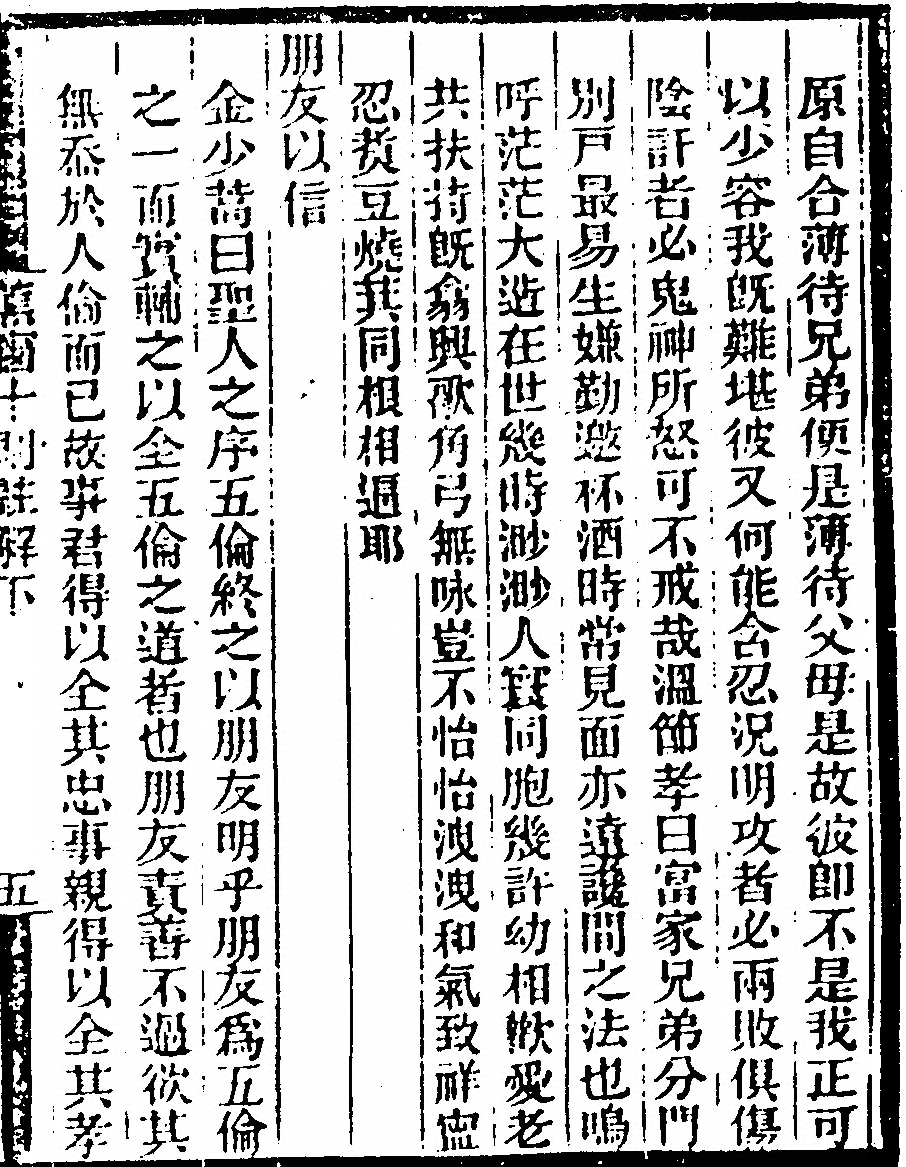 原自合薄待兄弟便是薄待父母是故彼卽不是我正可
以少容我旣難堪彼又何能含忍況明攻者必兩敗俱傷
陰訐者必鬼神所怒可不戒哉溫節孝曰富家兄弟分門
別戸最易生嫌勤邀杯酒時常見面亦遠讒間之法也嗚
呼茫茫大造在世幾時渺渺人寰同胞幾許幼相歡愛老
共扶持旣翕興歌角弓無咏豈不怡怡洩洩和氣致祥寧
忍煑豆燒萁同根相逼耶
朋友以信
金少蒿曰聖人之序五倫終之以朋友明乎朋友爲五倫
之一而實輔之以全五倫之道者也朋友責善不過欲其
無忝於人倫而已故事君得以全其忠事親得以全其孝
蕉窗十則註解下
五